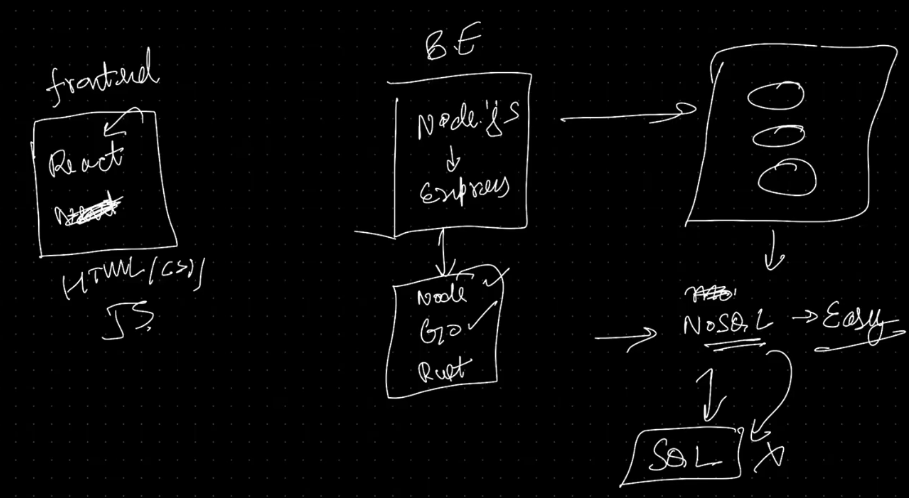 frontend
React
HTML/CSS/
JS
BE
Node.js
Express
Node
Go
Rust
NoSQL → Easy
SQL X